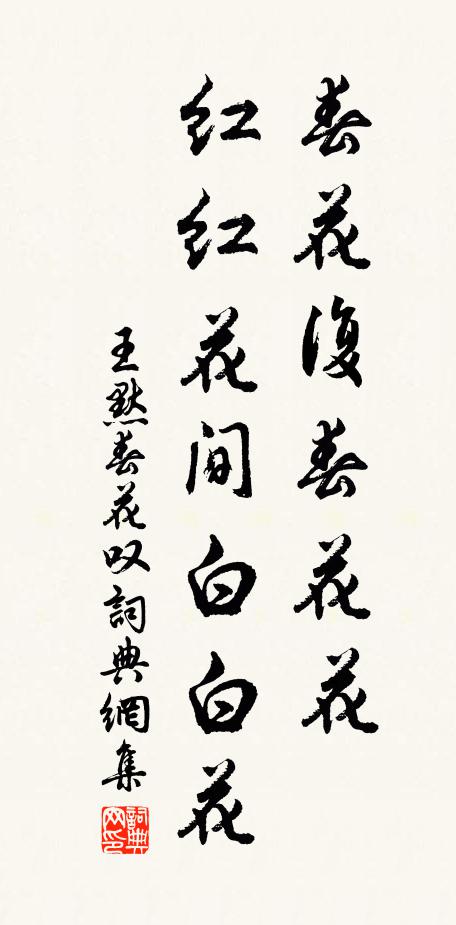 春花復春花花
红红花间白白花
王默春花叹詞典網集
詞典网印